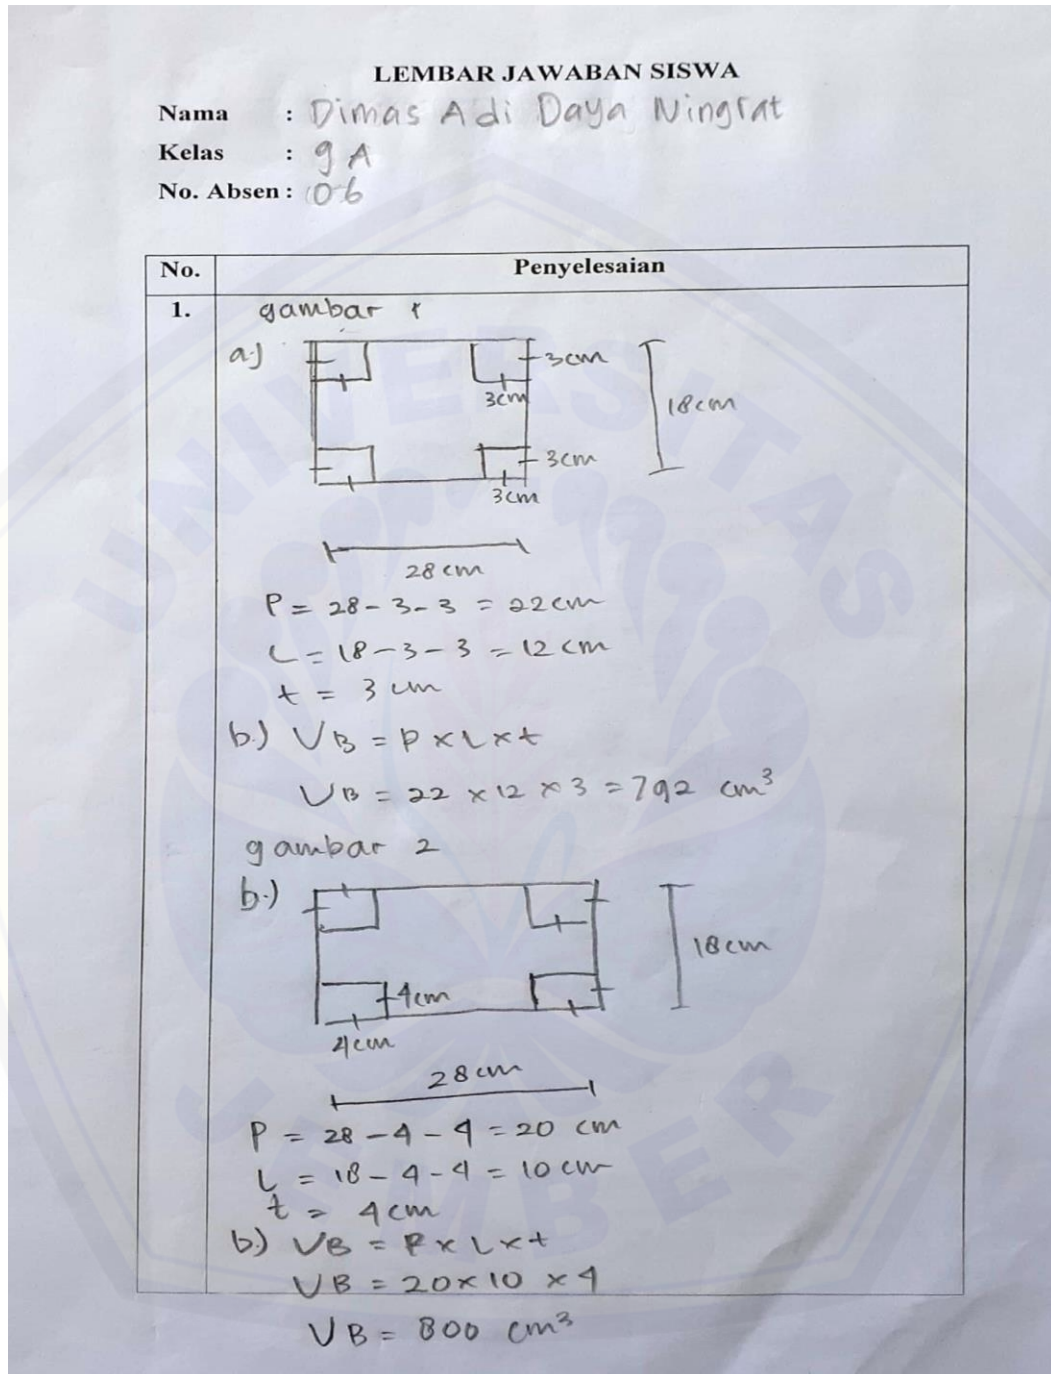 LEMBAR JAWABAN SISWA
Nama : Dimas Adi Daya Ningrat
Kelas : 9 A
No. Absen : 06
No. Penyelesaian
1. gambar 1
a.)
3cm
3cm
18cm
3cm
3cm
28 cm
P = 28 - 3 - 3 = 22 cm
L = 18 - 3 - 3 = 12 cm
t = 3 cm
b.) VB = P x L x t
VB = 22 x 12 x 3 = 792 cm³
gambar 2
b.)
18cm
4cm
4cm
28 cm
P = 28 - 4 - 4 = 20 cm
L = 18 - 4 - 4 = 10 cm
t = 4 cm
b.) VB = P x L x t
VB = 20 x 10 x 4
VB = 800 cm³
UNIVERSITAS
JEMBER